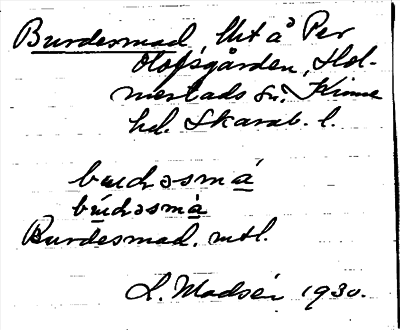 Burdesmad, Utt å Per
Olofsgården, Hol-
mestads sn. Kinne
hd. Skarab. l.
Burdesmad. mtl.
L. Modsén 1930.